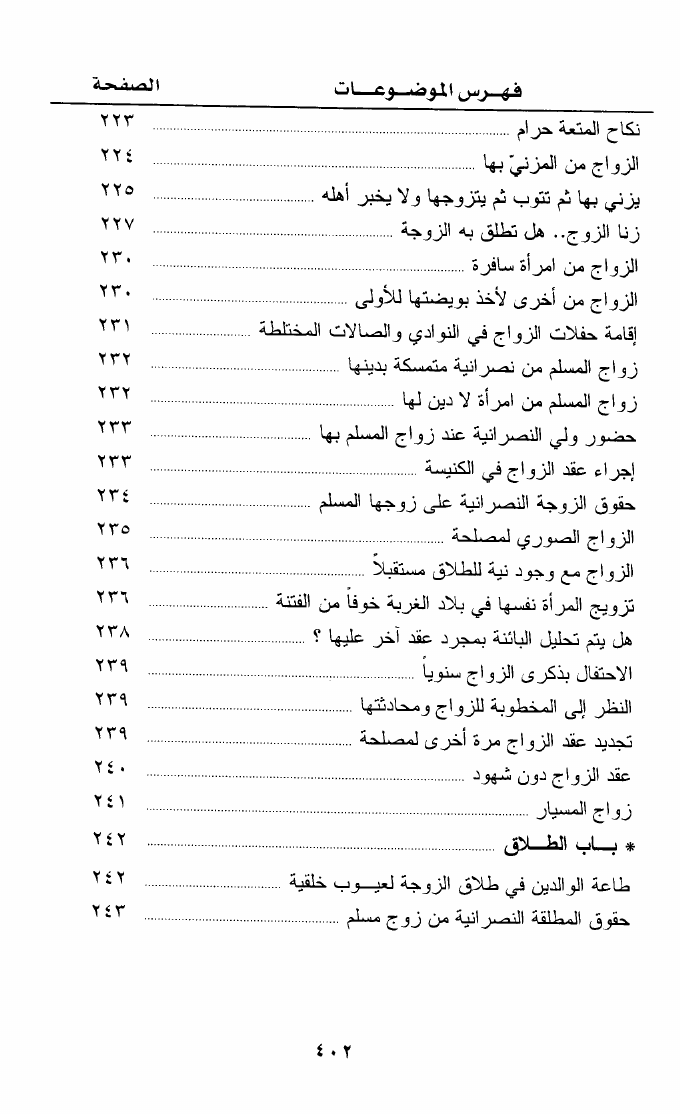 فهرس الموضوعات الصفحة
نكاح المتعة حرام ٢٢٣
الزواج من المزنيّ بها ٢٢٤
يزني بها ثم تتوب ثم يتزوجها ولا يخبر أهله ٢٢٥
زنا الزوج.. هل تطلق به الزوجة ٢٢٧
الزواج من امرأة سافرة ٢٣٠
الزواج من أخرى لأخذ بويضتها للأولى ٢٣٠
إقامة حفلات الزواج في النوادي والصالات المختلطة ٢٣١
زواج المسلم من نصرانية متمسكة بدينها ٢٣٢
زواج المسلم من امرأة لا دين لها ٢٣٢
حضور ولي النصرانية عند زواج المسلم بها ٢٣٣
إجراء عقد الزواج في الكنيسة ٢٣٣
حقوق الزوجة النصرانية على زوجها المسلم ٢٣٤
الزواج الصوري لمصلحة ٢٣٥
الزواج مع وجود نية للطلاق مستقبلاً ٢٣٦
تزويج المرأة نفسها في بلاد الغربة خوفاً من الفتنة ٢٣٦
هل يتم تحليل البائنة بمجرد عقد آخر عليها ؟ ٢٣٨
الاحتفال بذكرى الزواج سنوياً ٢٣٩
النظر إلى المخطوبة للزواج ومحادثتها ٢٣٩
تجديد عقد الزواج مرة أخرى لمصلحة ٢٣٩
عقد الزواج دون شهود ٢٤٠
زواج المسيار ٢٤١
* بـــاب الطـــلاق ٢٤٢
طاعة الوالدين في طلاق الزوجة لعيـــوب خلقية ٢٤٢
حقوق المطلقة النصرانية من زوج مسلم ٢٤٣
٤٠٢